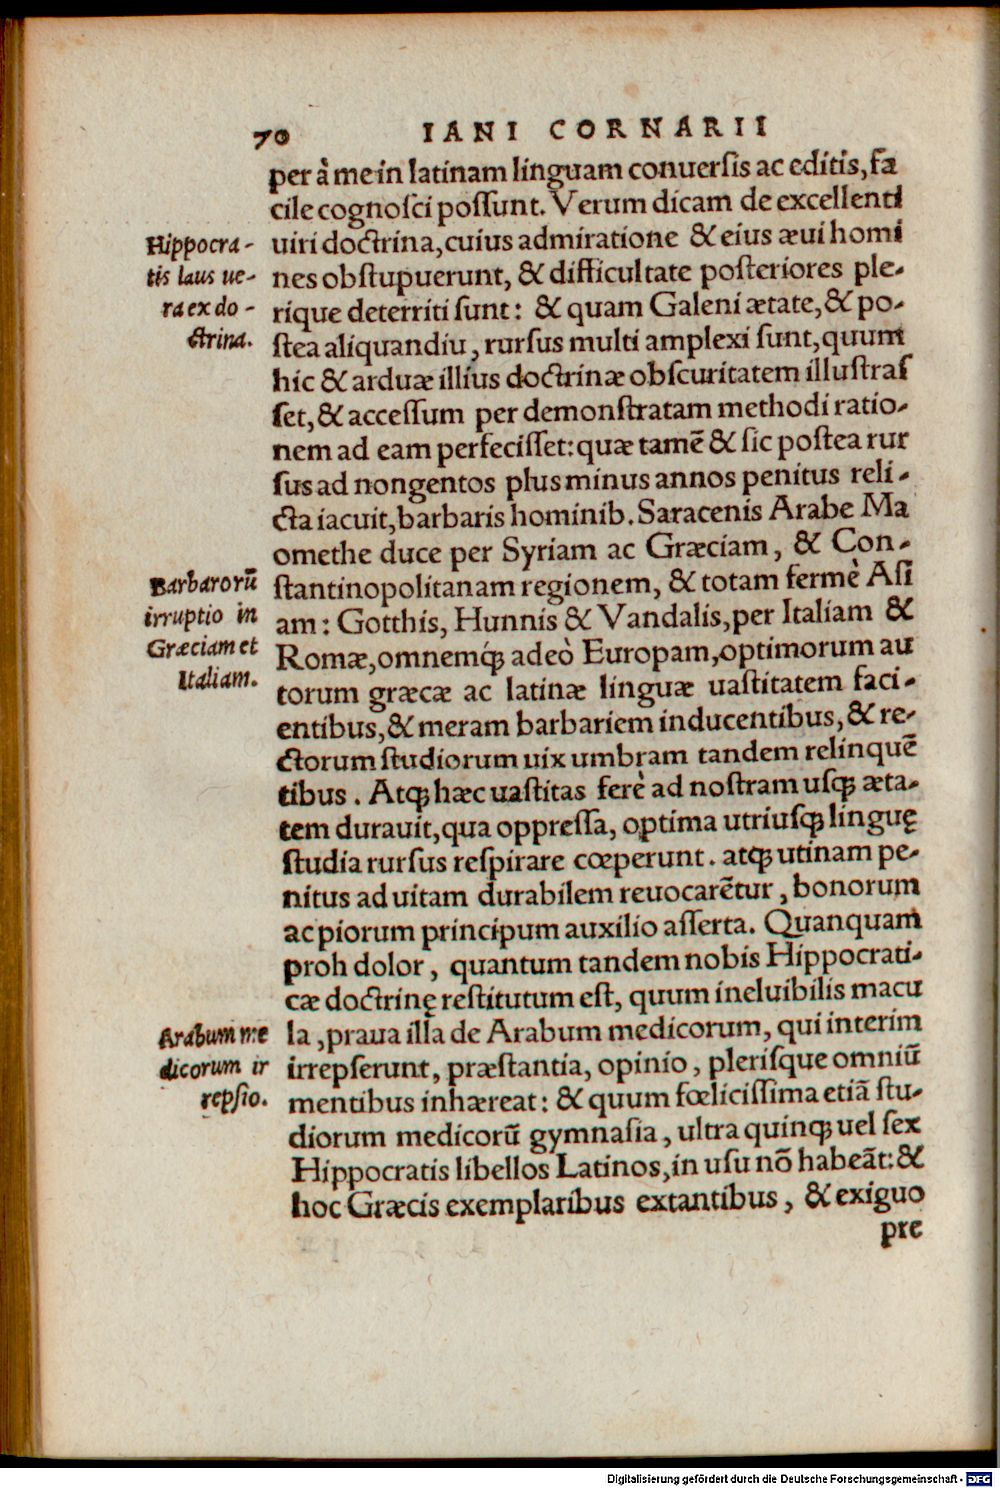 70 IANI CORNARII
per à me in latinam linguam conuersis ac editis, fa
cile cognosci possunt. Verum dicam de excellenti
uiri doctrina, cuius admiratione & eius æui homi
nes obstupuerunt, & difficultate posteriores ple-
rique deterriti sunt: & quam Galeni ætate, & po-
stea aliquandiu, rursus multi amplexi sunt, quum
hic & arduæ illius doctrinæ obscuritatem illustras
set, & accessum per demonstratam methodi ratio-
nem ad eam perfecisset: quæ tamē & sic postea rur
sus ad nongentos plus minus annos penitus reli-
cta iacuit, barbaris hominib. Saracenis Arabe Ma
omethe duce per Syriam ac Græciam, & Con-
stantinopolitanam regionem, & totam fermè Asi
am: Gotthis, Hunnis & Vandalis, per Italiam &
Romæ, omnemq́; adeò Europam, optimorum au
torum græcæ ac latinæ linguæ uastitatem faci-
entibus, & meram barbariem inducentibus, & re-
ctorum studiorum uix umbram tandem relinquē
tibus. Atq; hæc uastitas ferè ad nostram usq; æta-
tem durauit, qua oppressa, optima utriusq; linguę
studia rursus respirare cœperunt. atq; utinam pe-
nitus ad uitam durabilem reuocarētur, bonorum
ac piorum principum auxilio asserta. Quanquam
proh dolor, quantum tandem nobis Hippocrati-
cæ doctrinę restitutum est, quum ineluibilis macu
la, praua illa de Arabum medicorum, qui interim
irrepserunt, præstantia, opinio, plerisque omniū
mentibus inhæreat: & quum fœlicissima etiā stu-
diorum medicorū gymnasia, ultra quinq; uel sex
Hippocratis libellos Latinos, in usu nō habeāt: &
hoc Græcis exemplaribus extantibus, & exiguo
pre
Hippocra-
tis laus ue-
ra ex do-
ctrina.
Barbarorū
irruptio in
Græciam et
Italiam.
Arabum me
dicorum ir
repsio.
Digitalisierung gefördert durch die Deutsche Forschungsgemeinschaft - DFG